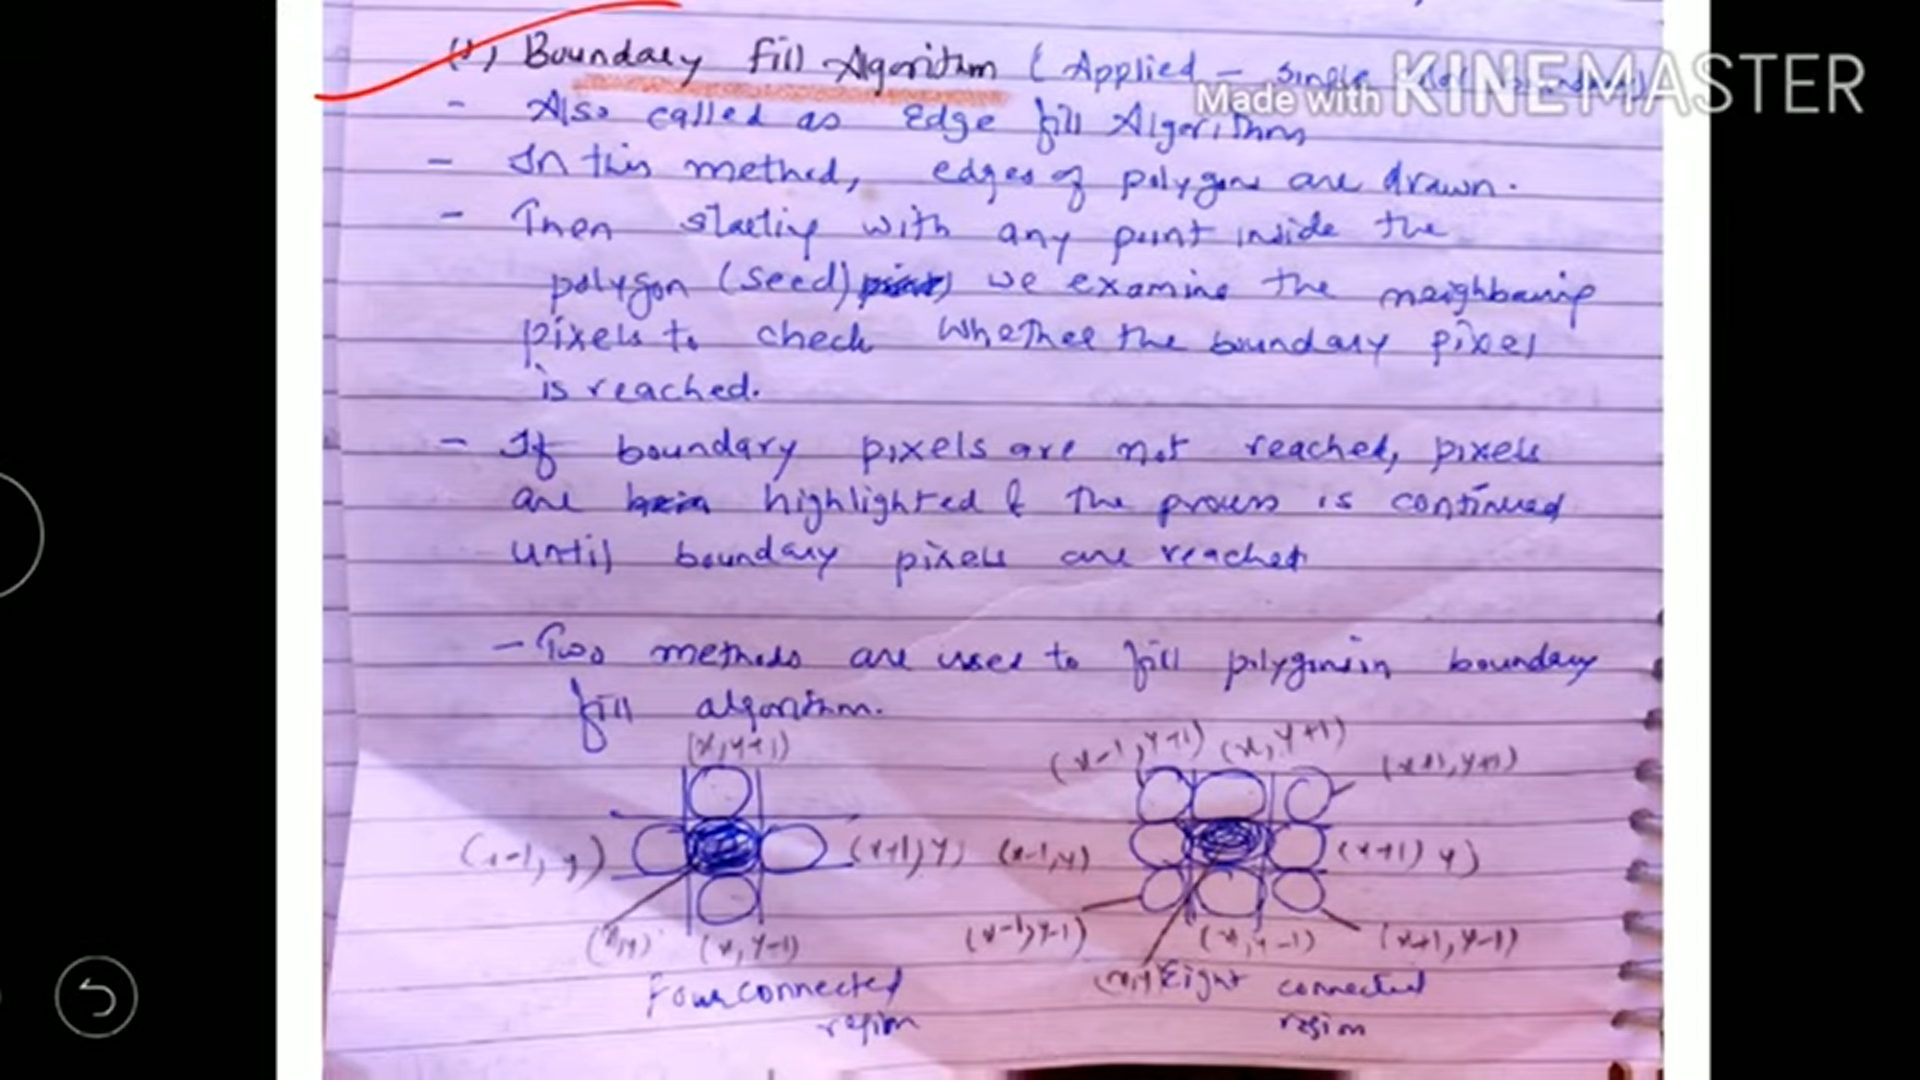 (1) Boundary Fill Algorithm (Applied - single
Made with KINEMASTER
- Also called as Edge fill Algorithm
- In this method, edges of polygons are drawn.
- Then starting with any point inside the
polygon (seed) we examine the neighbouring
pixels to check whether the boundary pixel
is reached.
- If boundary pixels are not reached, pixels
are highlighted & the process is continued
until boundary pixels are reached
- Two methods are used to fill polygons in boundary
fill algorithm.
(x, y+1)
(x-1, y) (x+1, y)
(x, y) (x, y-1)
Four connected
region
(x-1, y+1) (x, y+1) (x+1, y+1)
(x-1, y) (x+1, y)
(x-1, y-1) (x, y-1) (x+1, y-1)
(x, y) Eight connected
region